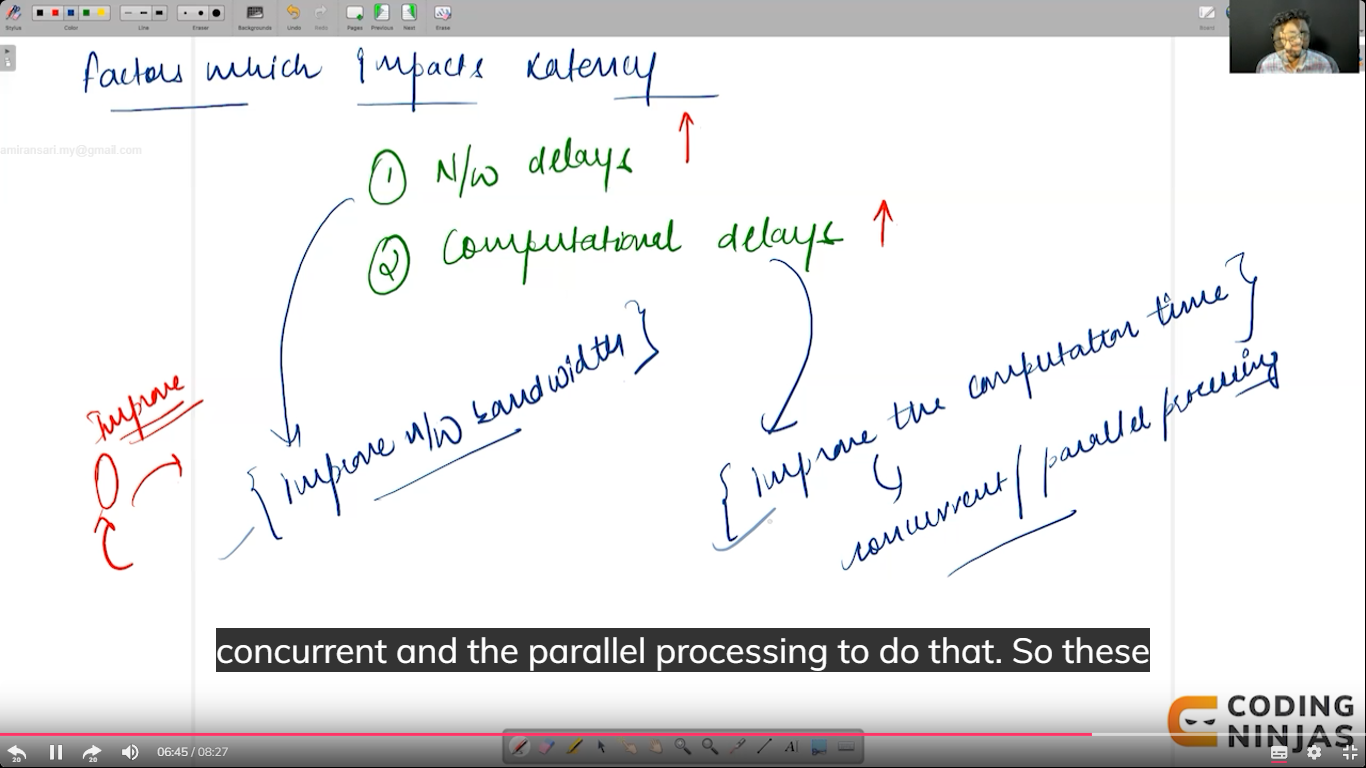 Stylus
Color
Line
Eraser
Backgrounds
Undo
Redo
Pages
Previous
Next
Erase
Board
Factors which Impacts Latency
amiransari.my@gmail.com
① N/W delays
② Computational delays
Improve
{ improve N/W bandwidth }
{ improve the computation time }
concurrent / parallel processing
concurrent and the parallel processing to do that. So these
CODING
NINJAS
20
20
06:45 / 08:27